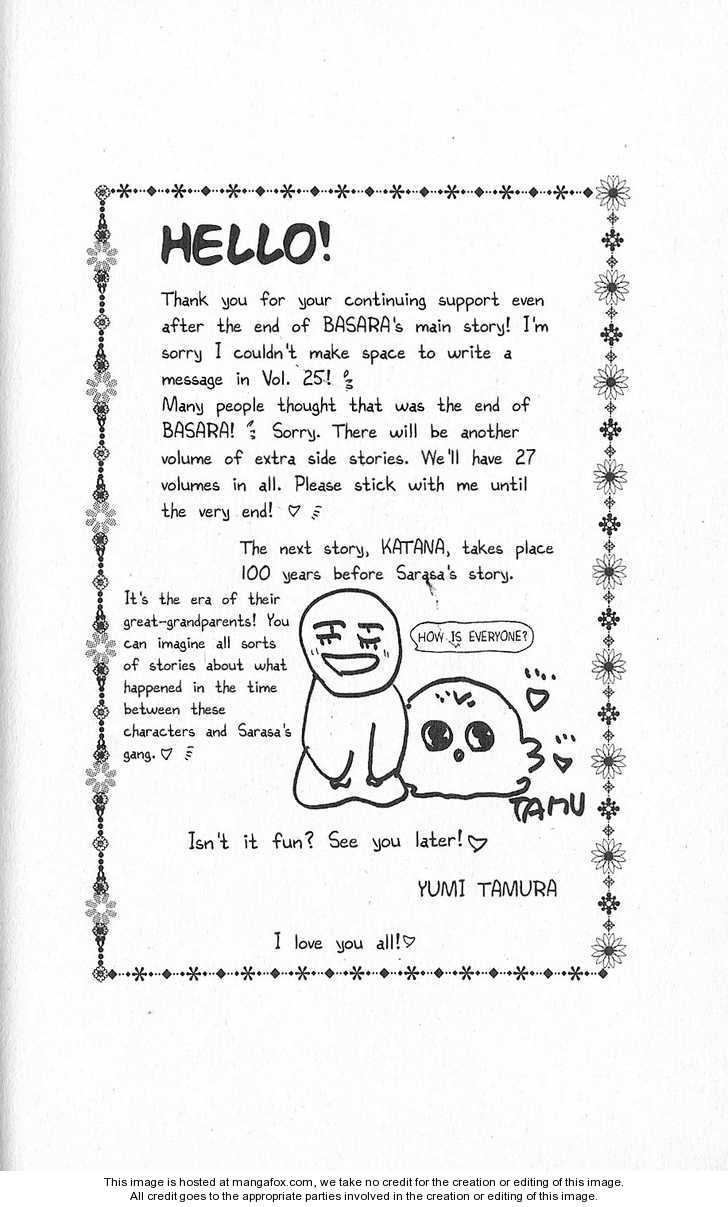 HELLO!
Thank you for your continuing support even
after the end of BASARA's main story! I'm
sorry I couldn't make space to write a
message in Vol. 25!
Many people thought that was the end of
BASARA! Sorry. There will be another
volume of extra side stories. We'll have 27
volumes in all. Please stick with me until
the very end! ♡
The next story, KATANA, takes place
100 years before Sarasa's story.
It's the era of their
great-grandparents! You
can imagine all sorts
of stories about what
happened in the time
between these
characters and Sarasa's
gang. ♡
HOW IS EVERYONE?
TAMU
Isn't it fun? See you later! ♡
YUMI TAMURA
I love you all! ♡
This image is hosted at mangafox.com, we take no credit for the creation or editing of this image.
All credit goes to the appropriate parties involved in the creation or editing of this image.